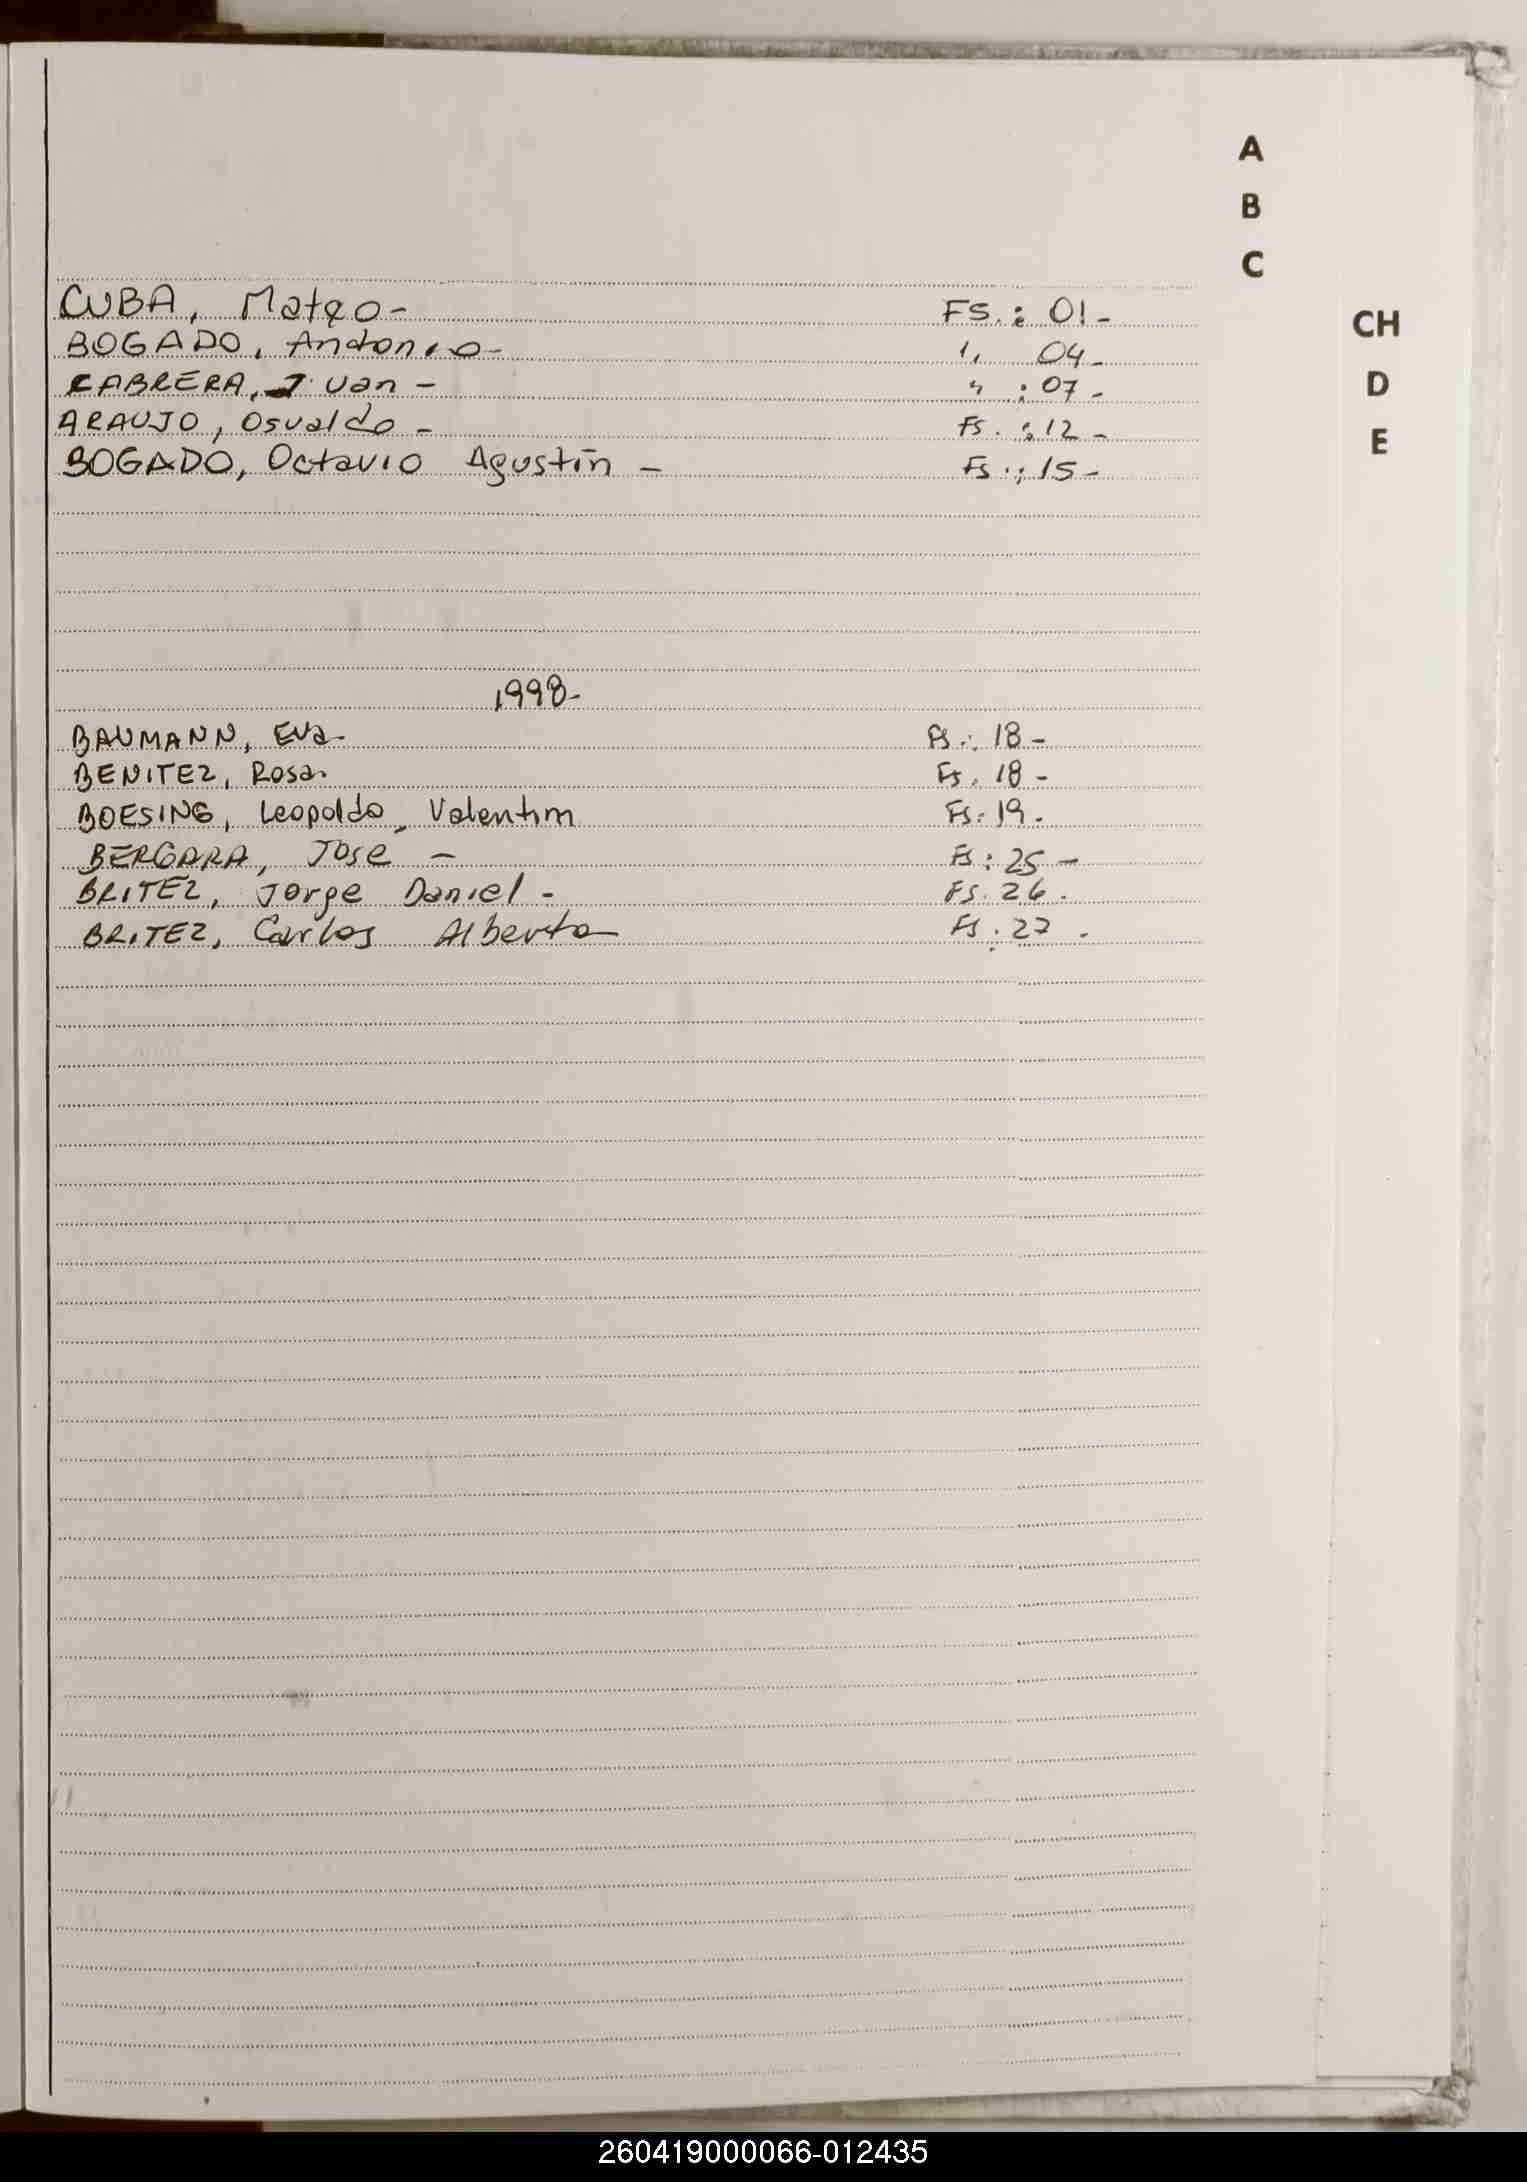 A
B
C
CUBA, Mateo- FS.: 01-
CH
BOGADO, Antonio- 1, 04-
CABRERA, Juan - " : 07-
D
ARAUJO, Osvaldo - Fs. : 12-
E
BOGADO, Octavio Agustín - Fs.: 15-
1998-
BAUMANN, Eva- Fs.: 18-
BENITEZ, Rosa. Fs. 18-
BOESING, Leopoldo Valentim Fs. 19.
BERGARA, Jose - Fs: 25-
BRITEZ, Jorge Daniel - FS. 26.
BRITEZ, Carlos Alberto Fs. 27.
260419000066-012435